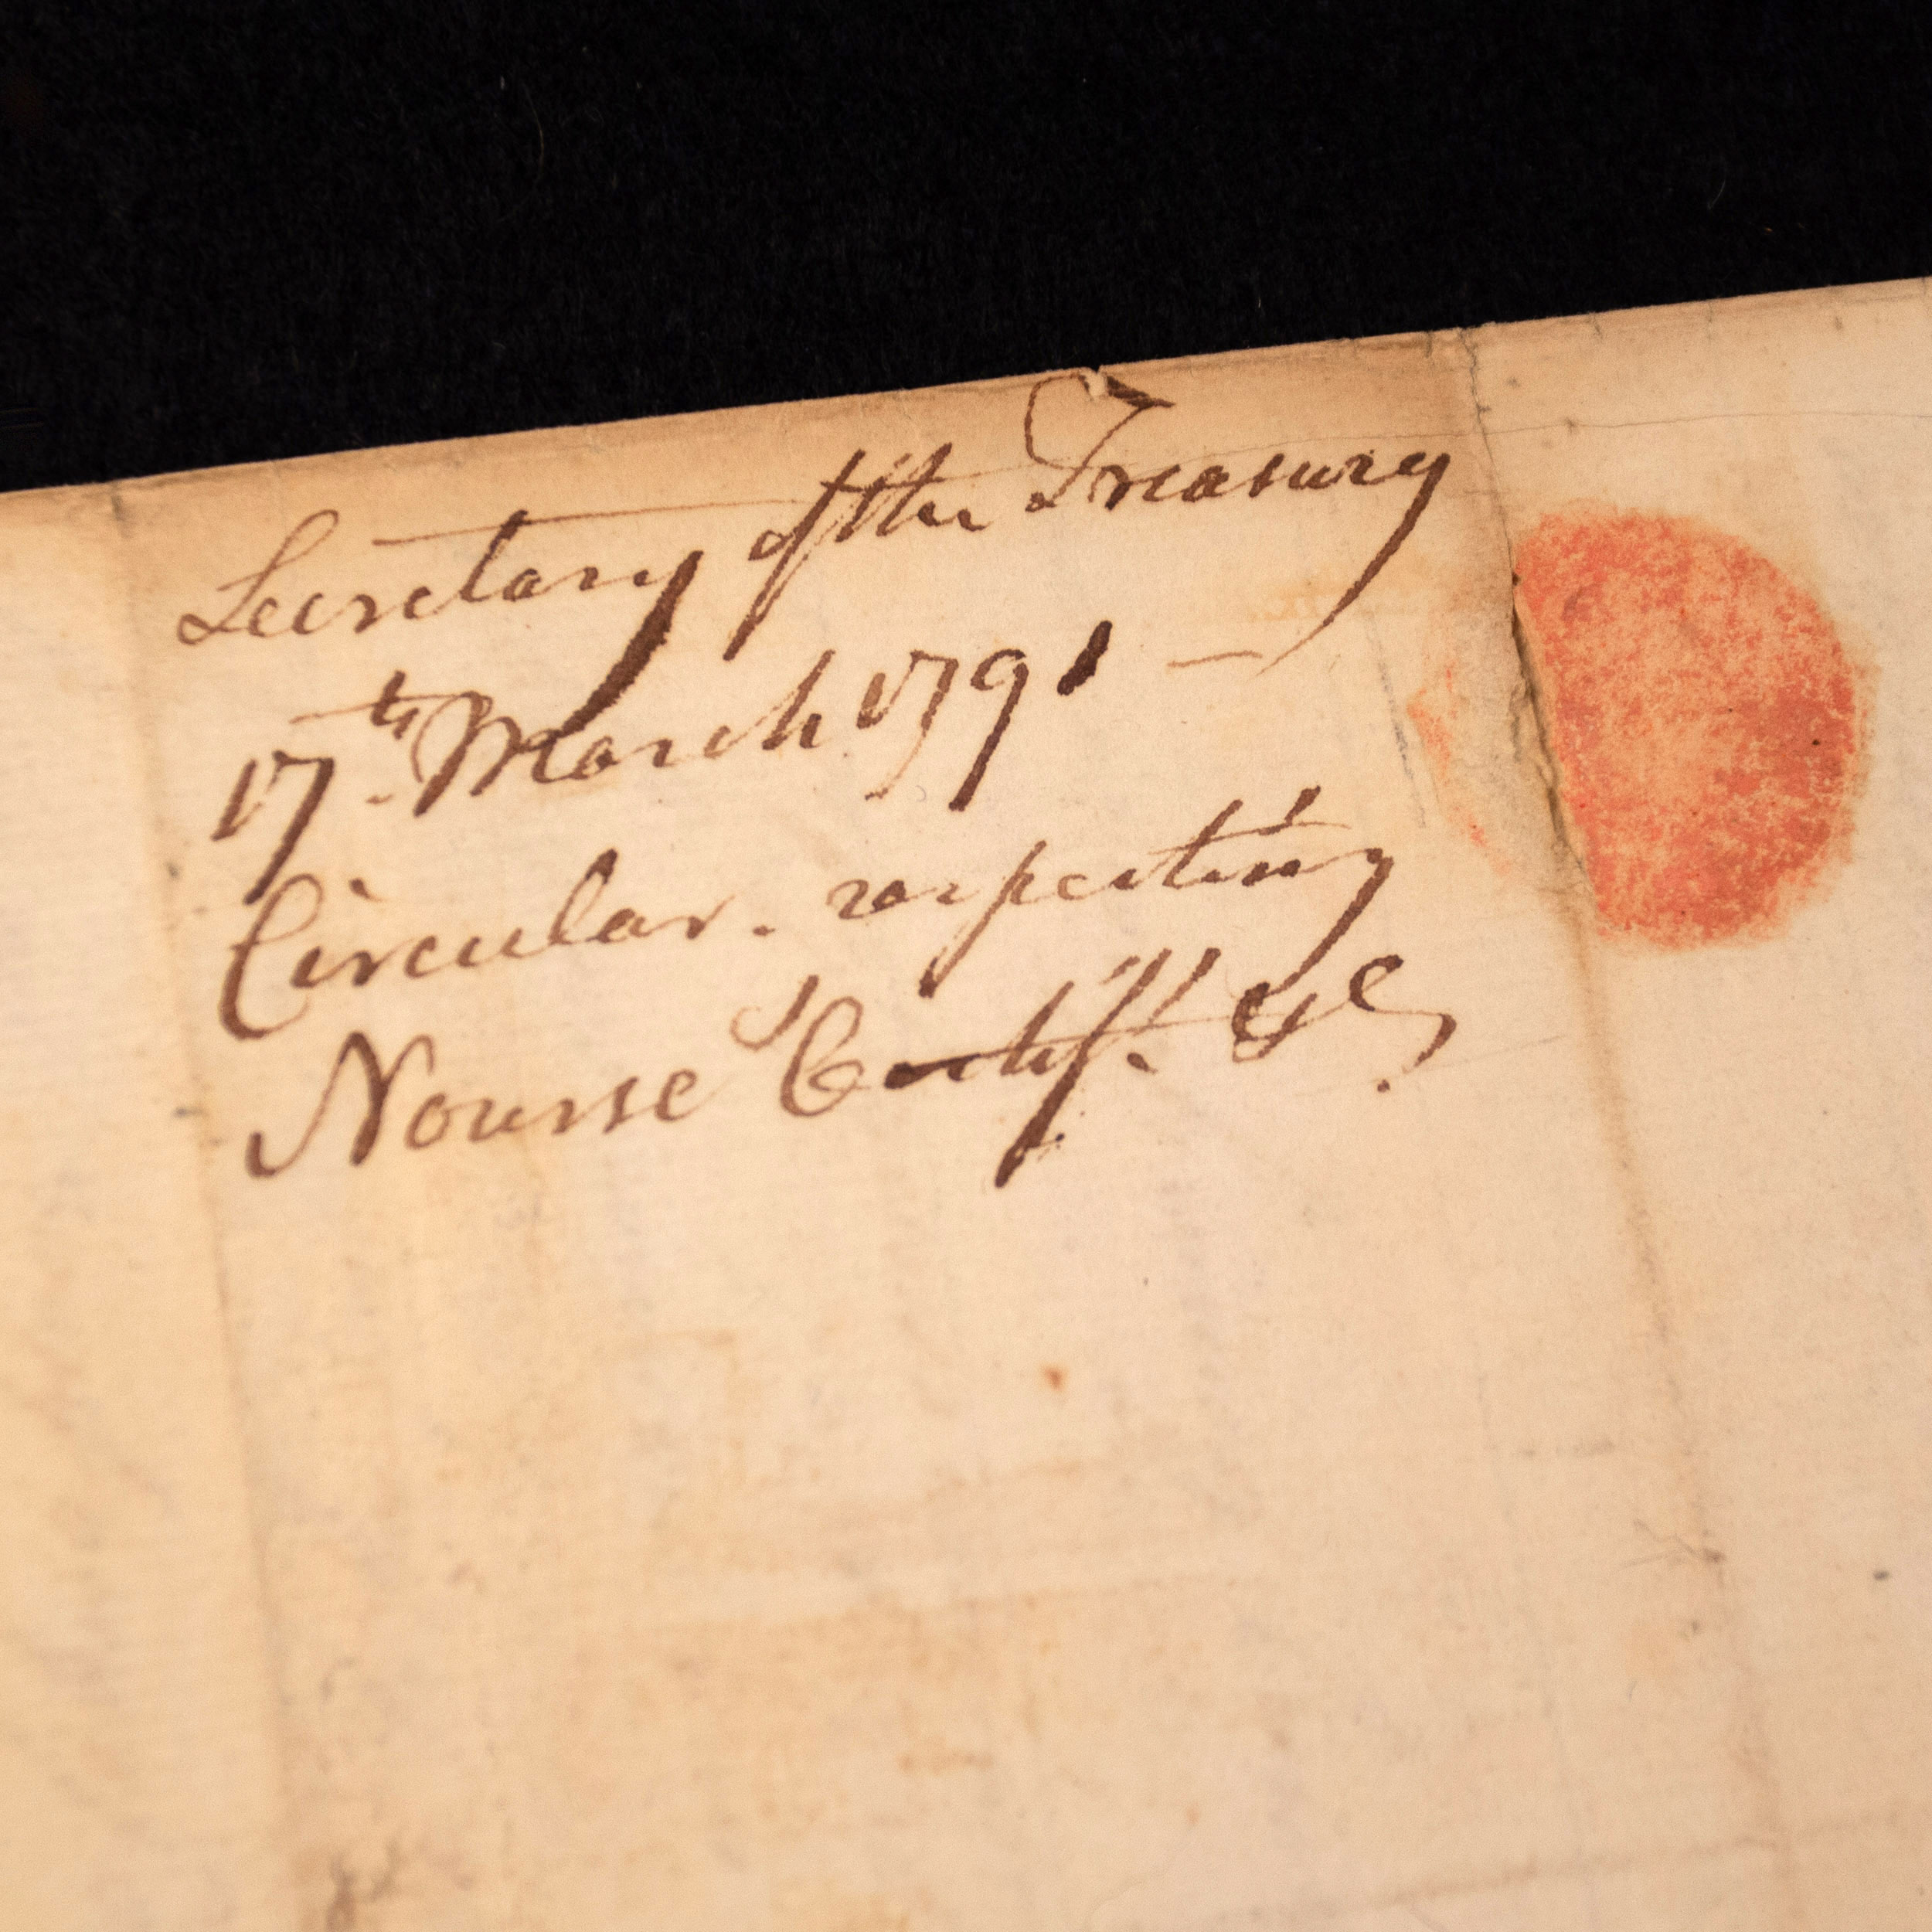 Secretary of the Treasury
17th March 1791 —
Circular. respecting
Nourse's Certifs. &c.